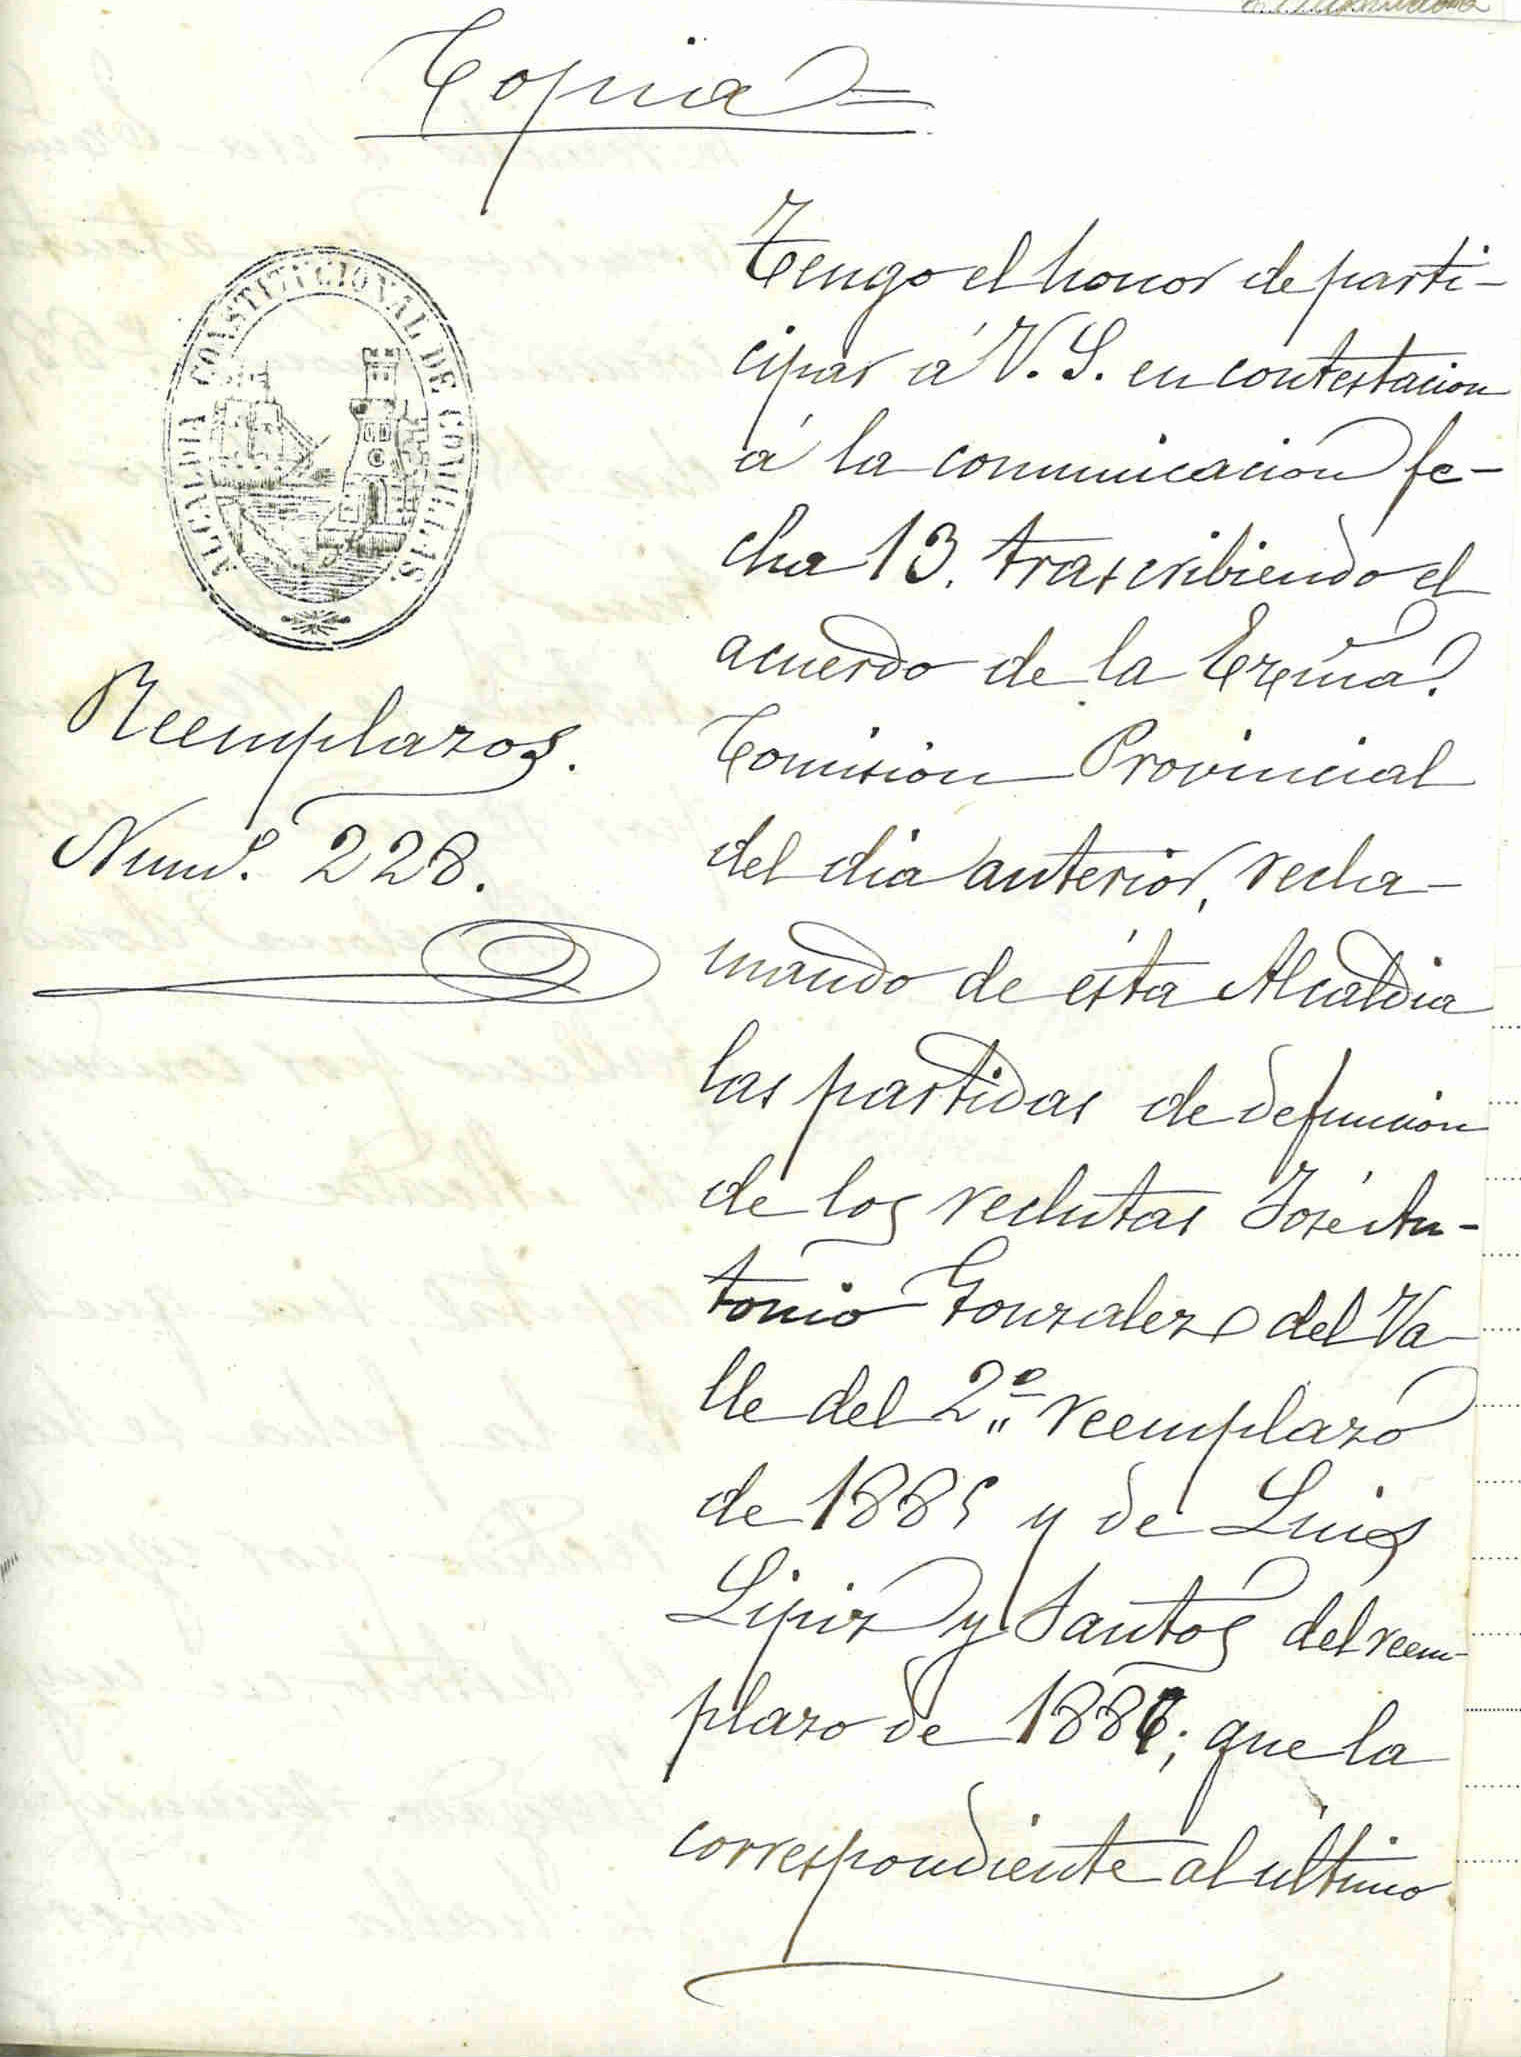 Copia=
ALCALDIA CONSTITUCIONAL DE COMILLAS
Reemplazos.
Num.º 228.
Tengo el honor de parti-
cipar á V. S. en contestacion
á la comunicacion fe-
cha 13. trascribiendo el
acuerdo de la Exma.
Comision Provincial
del dia anterior, recla-
mando de ésta Alcaldia
las partidas de defuncion
de los reclutas José An-
tonio Gonzalez del Va-
lle del 2.º reemplazo
de 1885 y de Luis
Lipiz y Santos del reem-
plazo de 1887; que la
correspondiente al último